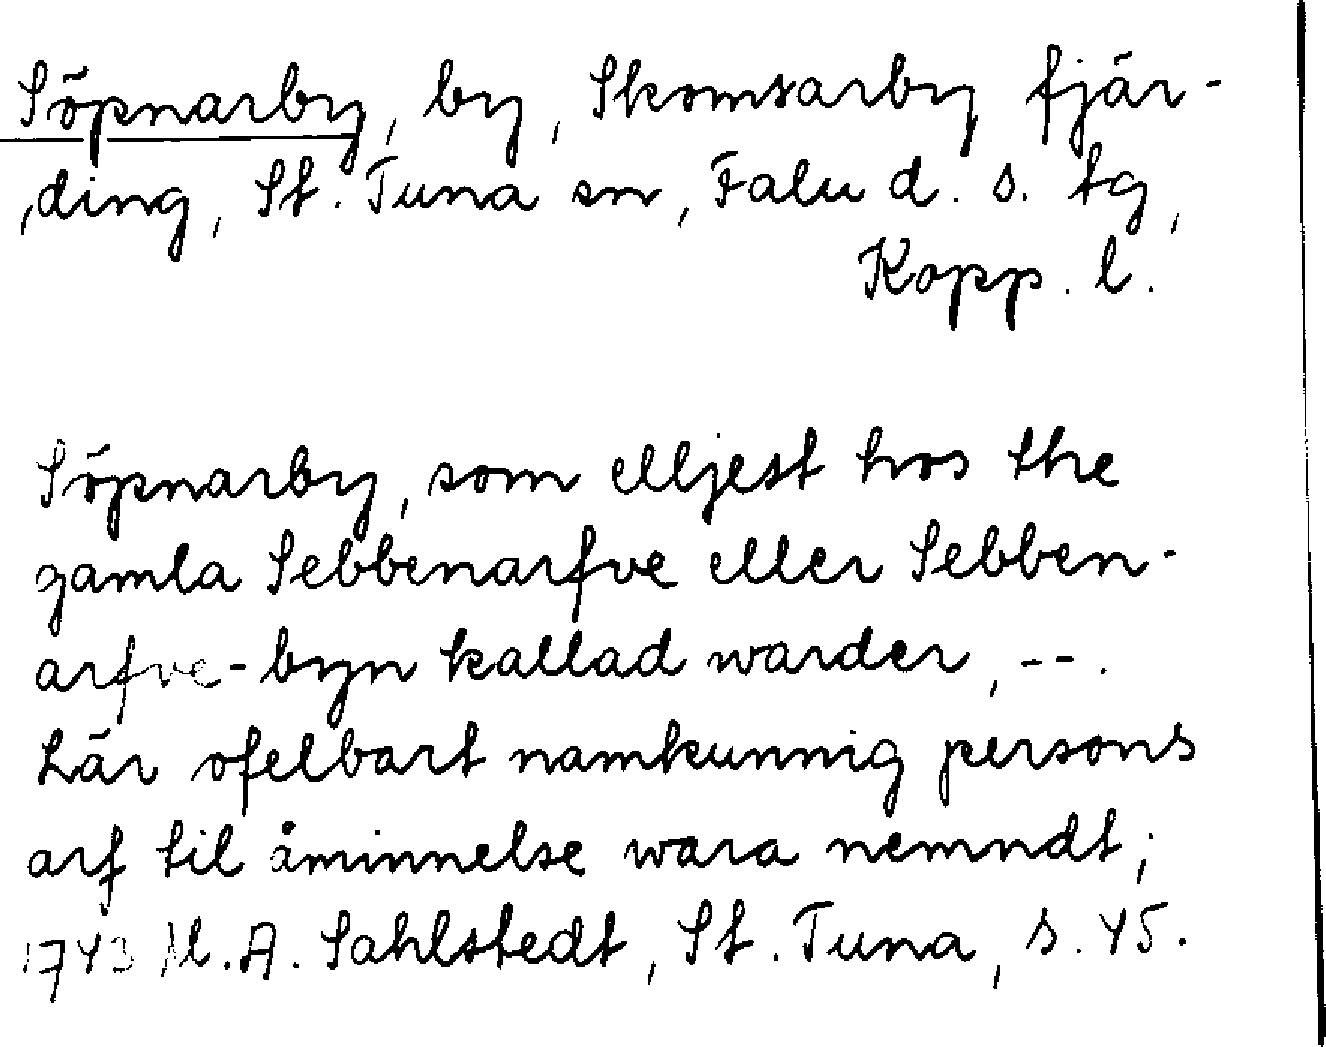 Söpnarby, by, Skomsarby fjär-
ding, St. Tuna sn, Falu d. s. tg,
Kopp. l.
Söpnarby, som elljest hos the
gamla Sebbenarfve eller Sebben-
arfve-byn kallad warder, --.
Lär ofelbart namkunnig persons
arf til åminnelse wara nemndt;
1743 M. A. Sahlstedt, St. Tuna, s. 45.